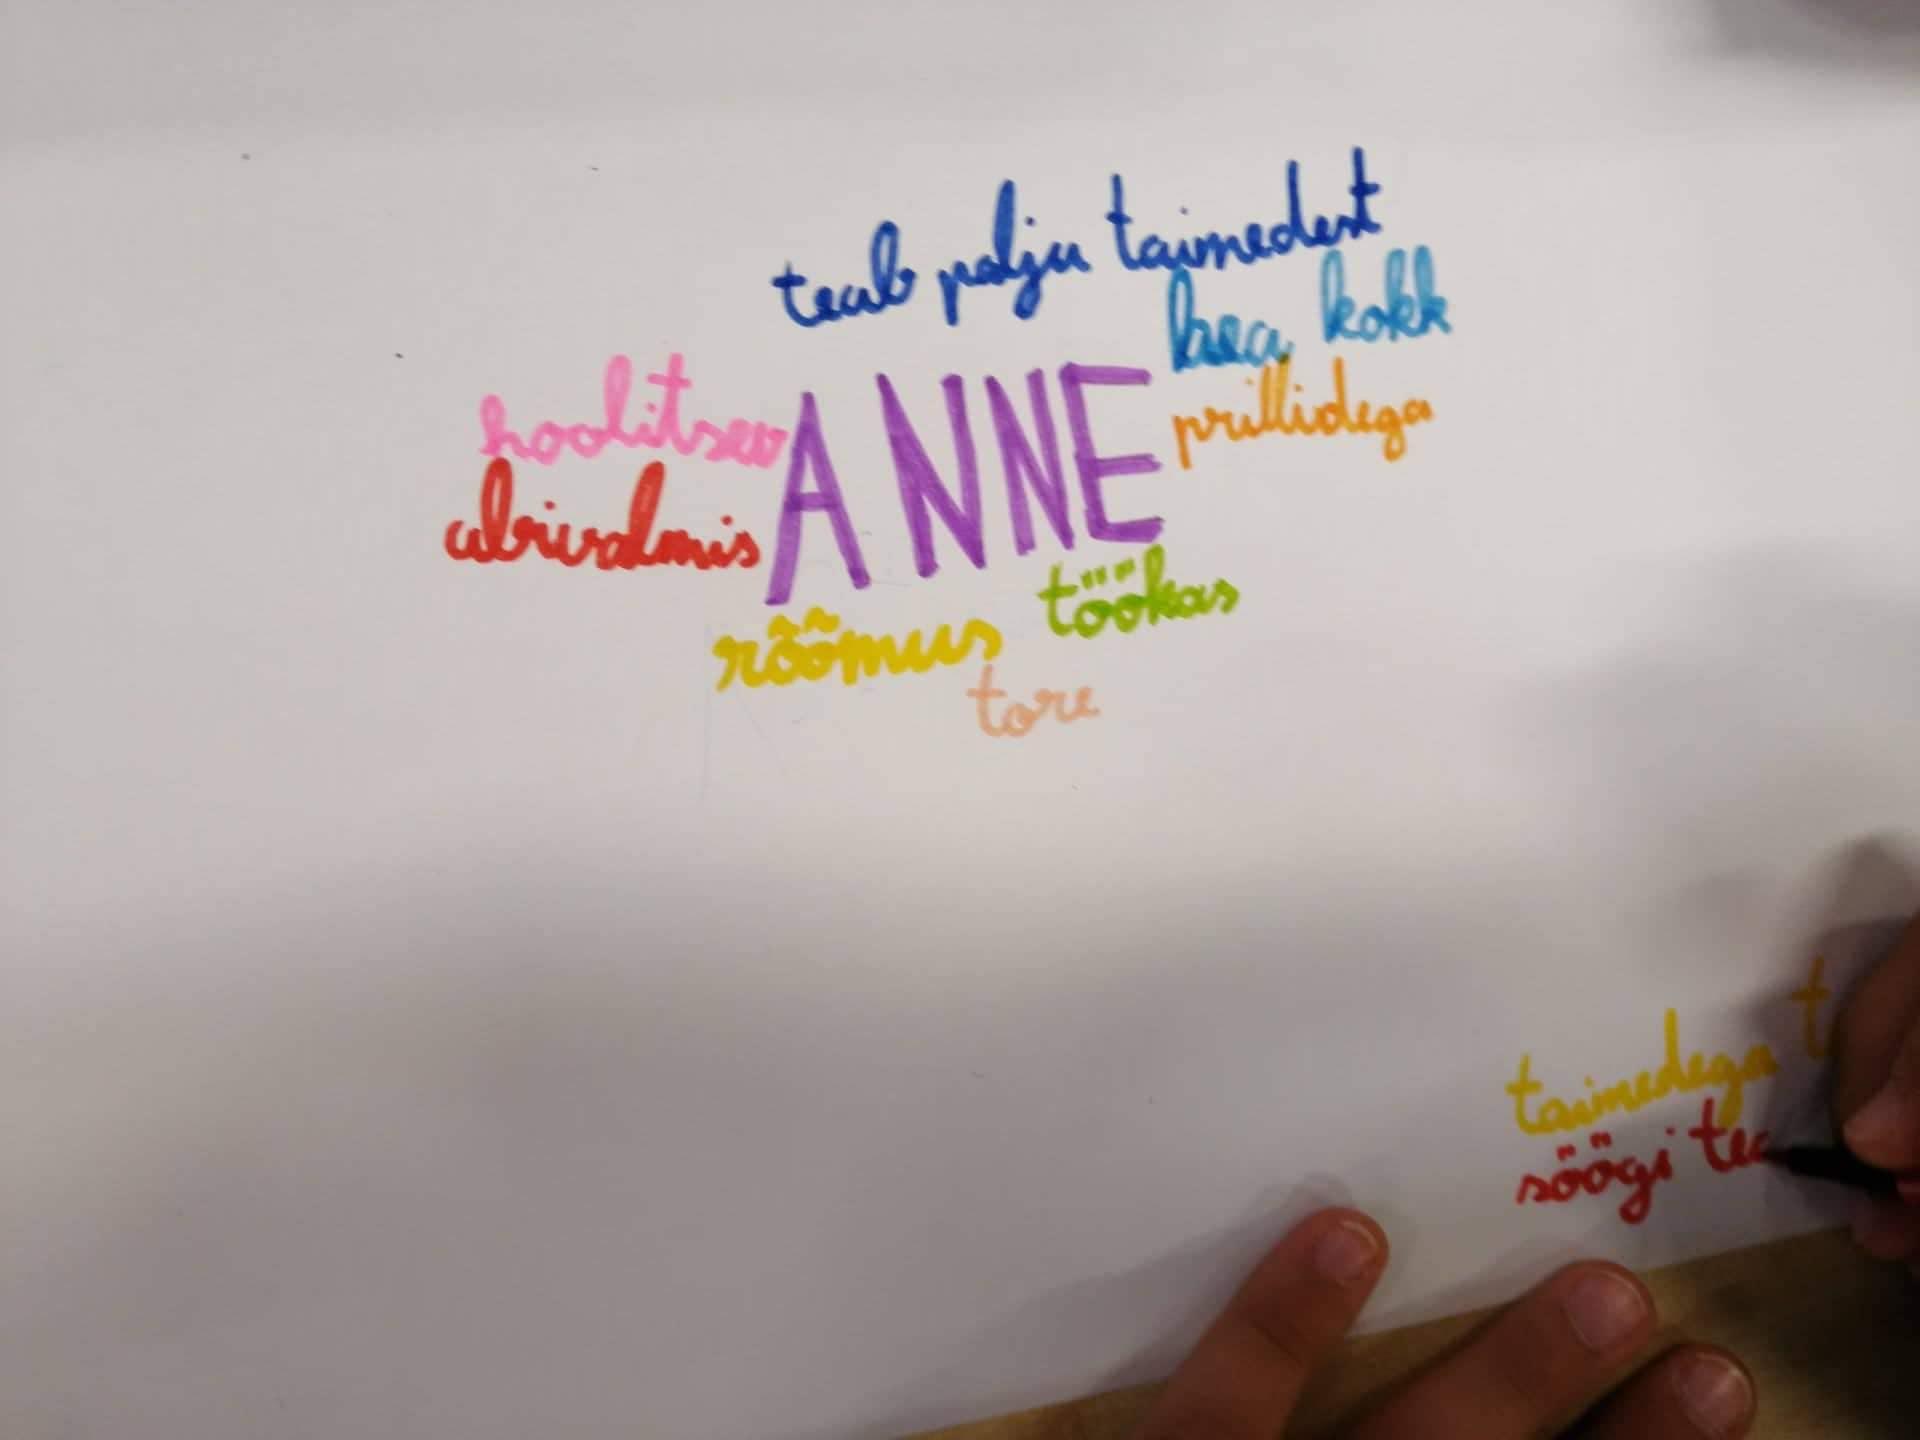 teab palju taimedest
hea kokk
hoolitsev
ANNE
prillidega
abivalmis
töökas
rõõmus
tore
taimedega
söögi